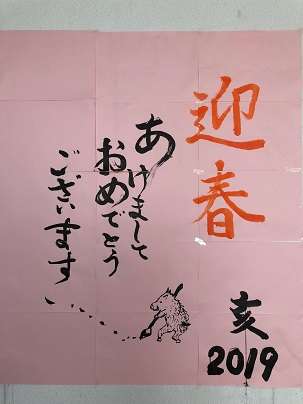 迎春
あけまして
おめでとう
ございます
亥
2019